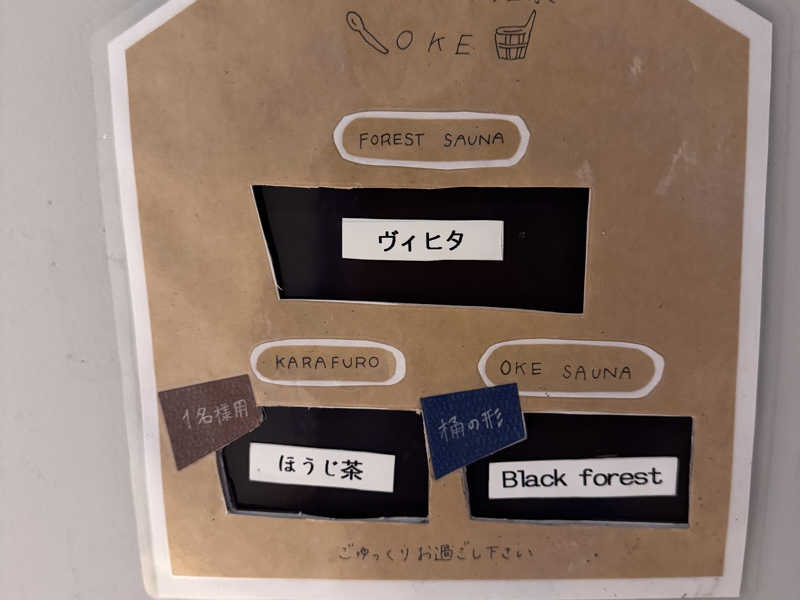 OKE
FOREST SAUNA
ヴィヒタ
KARAFURO
OKE SAUNA
1名様用
桶の形
ほうじ茶
Black forest
ごゆっくりお過ごし下さい